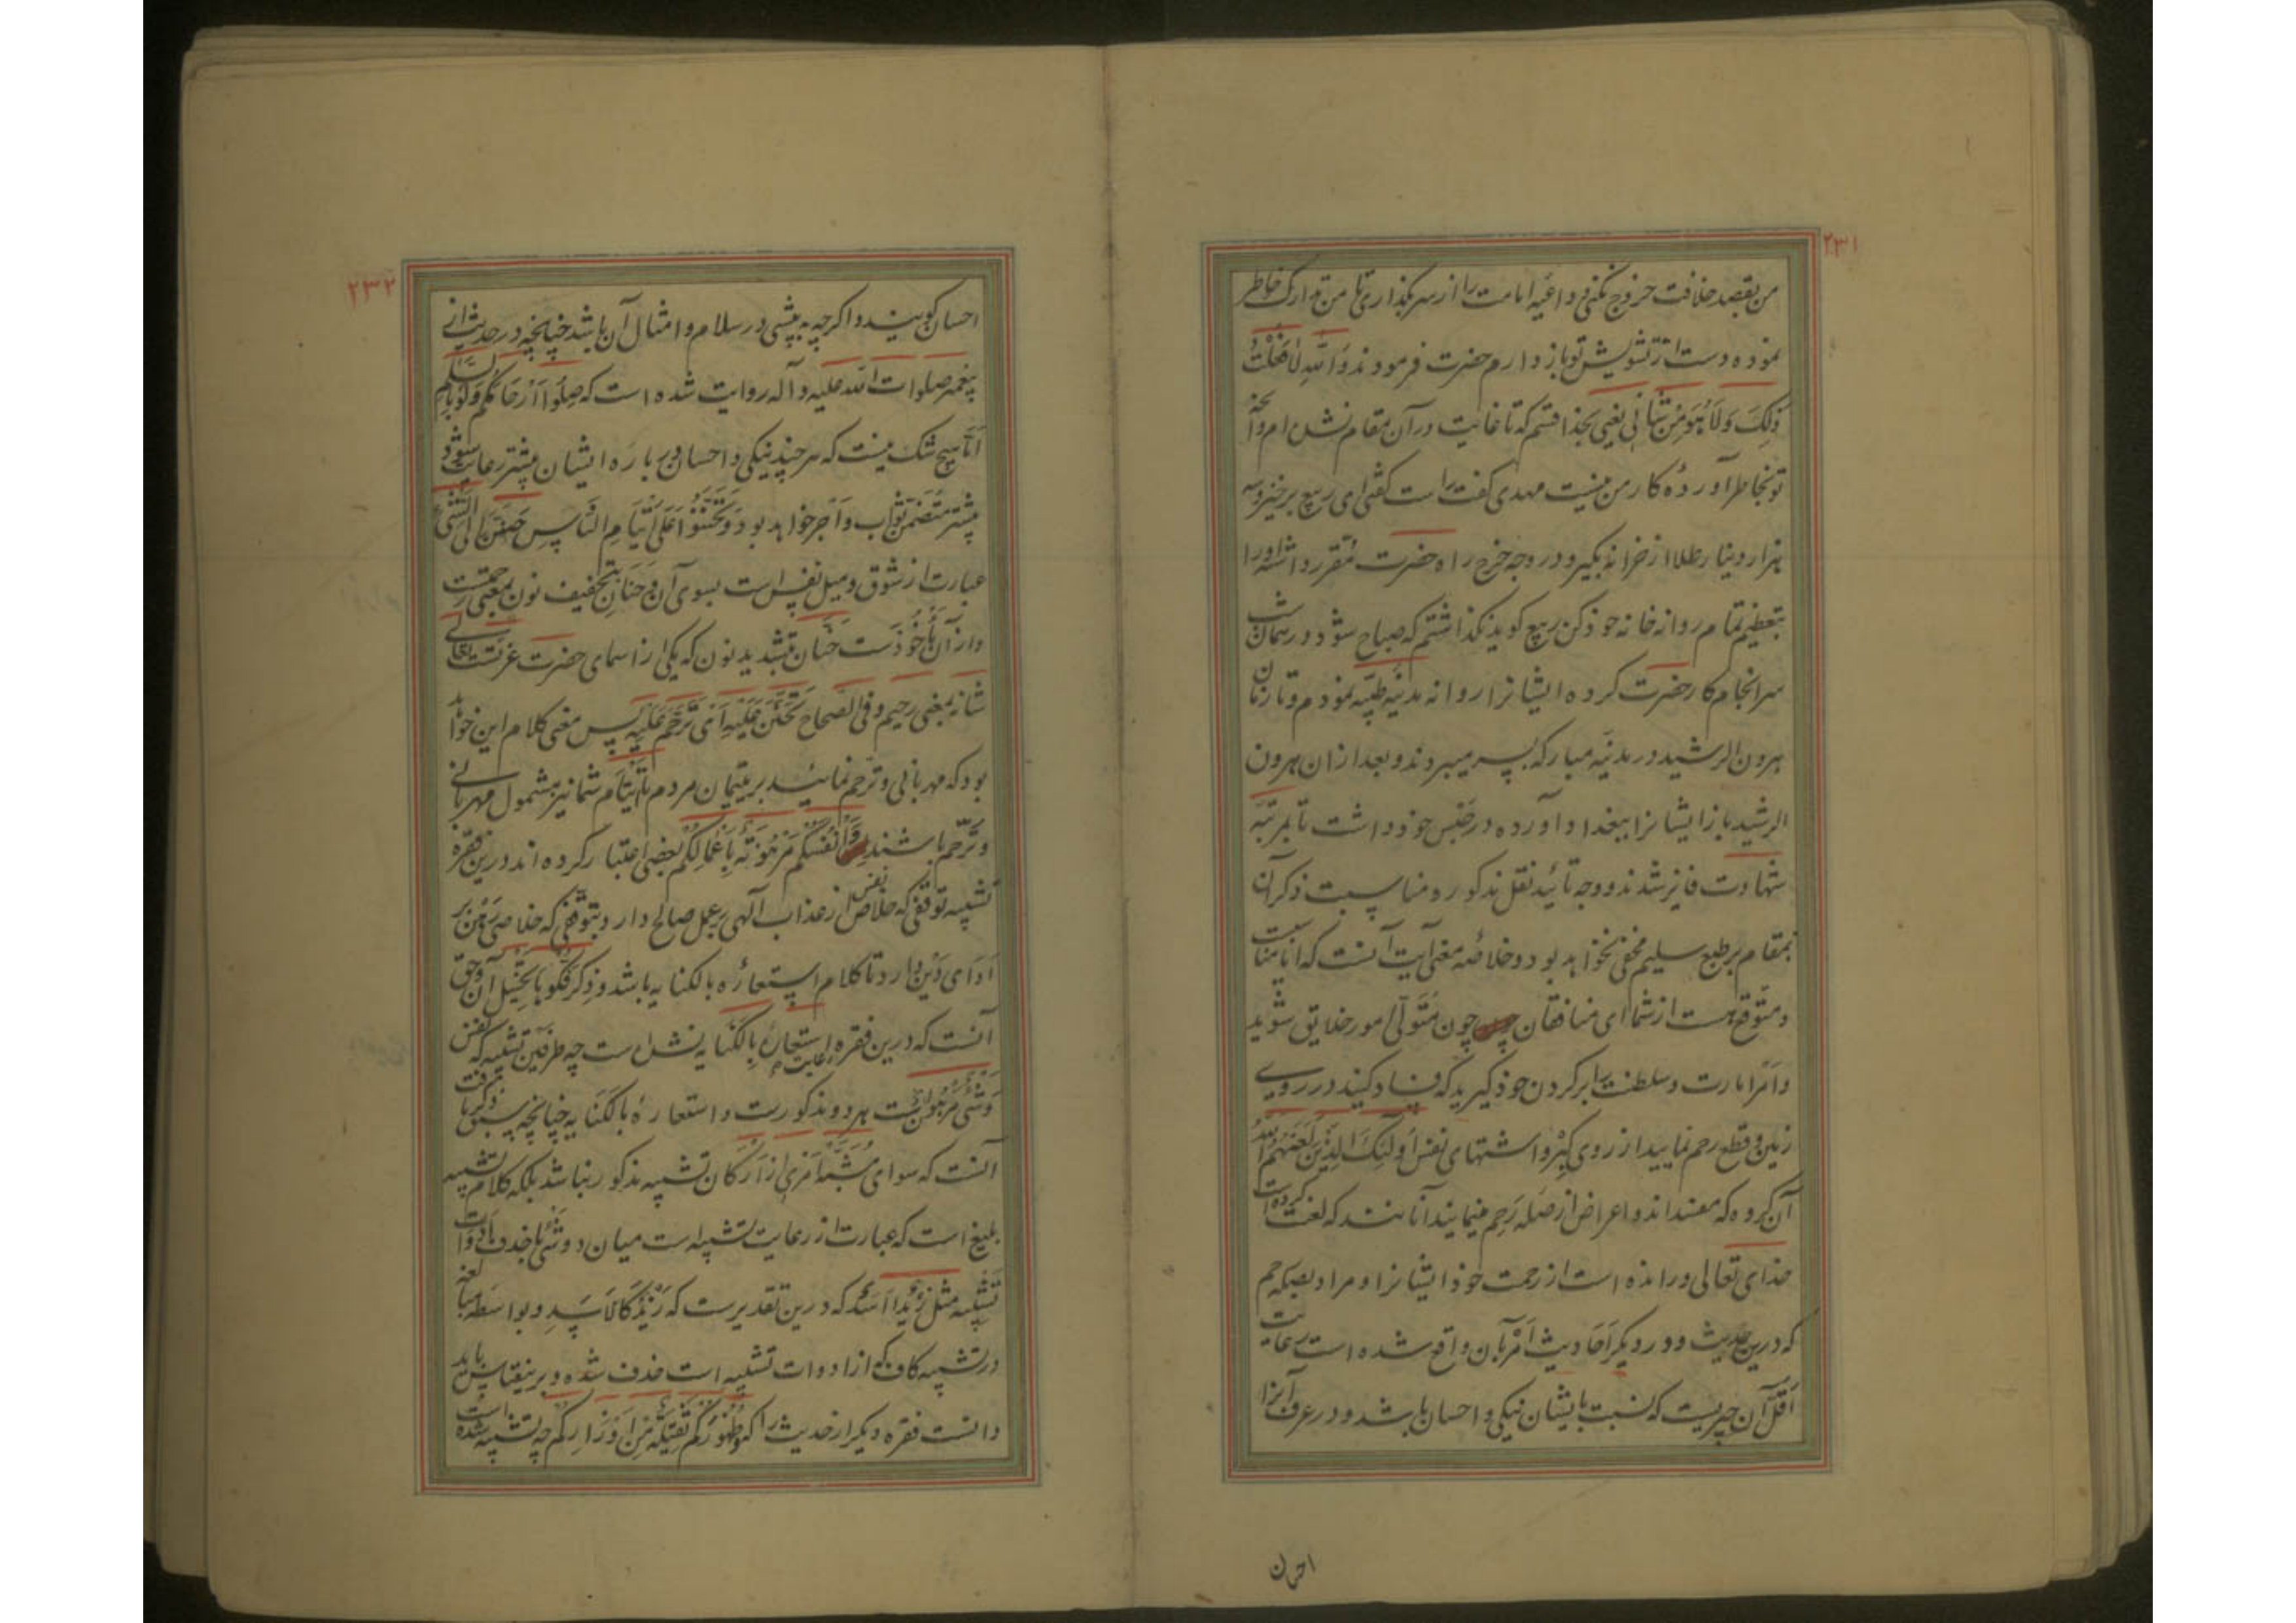 ۲۳۱
من بقصد خلافت خروج نکنی و داعیه امامت را از سر بگذاری تا من تدارک خاطر
نموده دست از تشویش تو باز دارم حضرت فرمودند وَاللّهِ لا فَعَلْتُ
ذلِکَ وَلا هُوَ مِنْ شَأنی یعنی بخدا قسم که تا غایت در آن مقام نشده ام و آنچه
تو بخاطر آورده کار من نیست مهدی گفت راست گفتی ای ربیع برخیز و سه
هزار دینار طلا از خزانه بگیر و در وجه خرج راه حضرت مقرر داشته او را
بتعظیم تمام روانه خانه خود کن ربیع گوید نگذاشتم که صباح شود در همان شب
سرانجام کار حضرت کرده ایشانرا روانه مدینه طیّبه نمودم و تا زمان
هرون الرشید در مدینه مبارکه بسر میبردند و بعد از ان هرون
الرشید باز ایشانرا ببغداد آورده در حبس خود داشت تا بمرتبه
شهادت فایز شدند و وجه تائید نقل مذکوره مناسبت ذکر آن
بمقام بر طبع سلیم مخفی نخواهد بود و خلاصه معنی آیت آنست که آیا مناسبت
و متوقع هست از شما ای منافقان چون متولّی امور خلایق شوید
و امر امارت و سلطنت را بر گردن خود گیرید که فساد کنید در روی
زمین و قطع رحم نمایید از روی کبر و اشتهای نفس أُولئِکَ الَّذینَ لَعَنَهُمُ اللّه
آن گروه که مفسداند و اعراض از صله رحم مینمایند آنانند که لعنت کرده است
خدای تعالی و رانده است از رحمت خود ایشانرا و مراد بصله رحم
که درین حدیث و در دیگر احادیث امر بآن واقع شده است رعایت
اقلّ آن چیزیست که نسبت بایشان نیکی و احسان باشد و در عرف آنرا
احسان
۲۳۲
احسان گویند و اگرچه به پیشی در سلام و امثال آن باشد چنانچه در حدیث از
پیغمبر صلوات الله علیه و آله روایت شده است که صِلُوا أَرْحامَکُمْ وَلَوْ بِالسَّلام
امّا هیچ شک نیست که هر چند نیکی و احسان در باره ایشان بیشتر رعایت شود
بیشتر متضمّن ثواب و اجر خواهد بود وَتَحَنَّنُوا عَلی أَیْتامِ النّاسِ حَنین الی الشئ
عبارت از شوق و میل نفس است بسوی آن و حَنان بتخفیف نون بمعنی رحمتست
و از آن ماخوذست حنّان بتشدید نون که یکی از اسمای حضرت عزتست تعالی
شانه بمعنی رحیم و فی الصحاح تَحَنَّنَ عَلَیْهِ أی تَرَحَّمَ عَلَیْهِ پس معنی کلام این خواهد
بود که مهربانی و ترحّم نمائید بر یتیمان مردم تا ایتام شما نیز مشمول مهربانی
و ترحّم باشند وَأَنْفُسَکُمْ مَرْهُونَةٌ بِأَعْمالِکُم بعضی اعتبار کرده اند درین فقره
تشبیه توقفی که خلاص نفس از عذاب آلهی بر عمل صالح دارد بتوقفی که خلاصی رهن بر
ادای دین دارد تا کلام استعاره بالکنایه باشد و ذکر فکّوها تخییل آن و حق
آنست که درین فقره رعایت استعاره بالکنایه نشده است چه طرفین تشبیه که نفس
و شئ مرهونست هر دو مذکورست و استعاره بالکنایه چنانچه سبق ذکر یافت
آنست که سوای مشبّه امری از ارکان تشبیه مذکور نباشد بلکه کلام تشبیه
بلیغ است که عبارت از رعایت تشبیه است میان دو شئ با حذف ادوات
تشبیه مثل زَیْدٌ أَسَدٌ که درین تقدیرست که زَیْدٌ کَالأَسَدِ و بواسطه مبالغه
در تشبیه کاف که از ادوات تشبیه است حذف شده و برینقیاس باید
دانست فقره دیگر از حدیث را که وَظُهُورَکُمْ ثَقیلَةٌ مِنْ أَوْزارِکُم چه تشبیه شده است